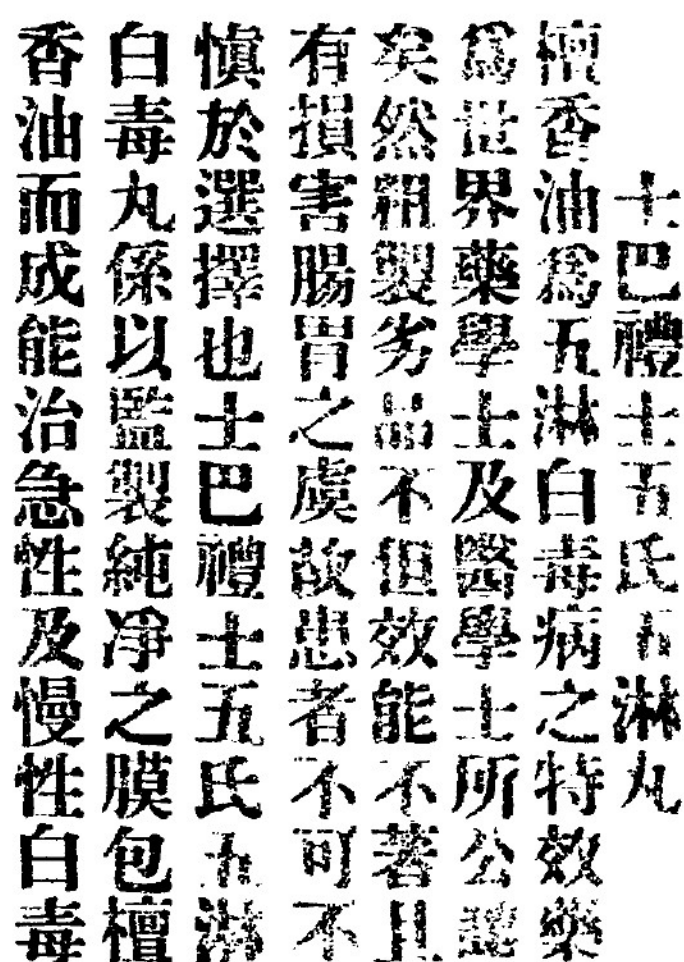 士巴禮士五氏五淋丸
檀香油爲五淋白毒病之特效藥
爲世界藥學士及醫學士所公認
矣然粗製劣品不但效能不著且
有損害腸胃之虞故患者不可不
慎於選擇也士巴禮士五氏五淋
白毒丸係以監製純淨之膜包檀
香油而成能治急性及慢性白毒